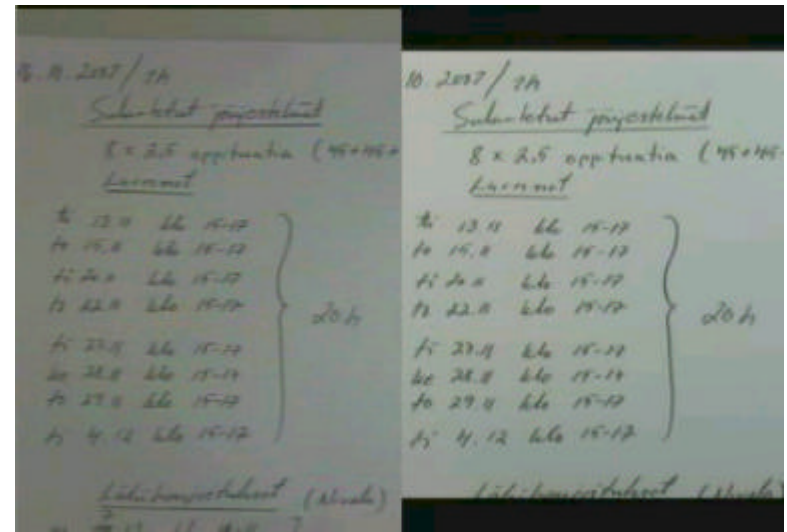 2007 / TH
Sulautetut järjestelmät
8 x 2,5 oppituntia (45+45+
Luennot
ti 13.11 klo 15-17
to 15.11 klo 15-17
ti 20.11 klo 15-17
to 22.11 klo 15-17
ti 27.11 klo 15-17
ke 28.11 klo 15-17
to 29.11 klo 15-17
ti 4.12 klo 15-17
20 h
(Nivala)
10. 2007 / TH
Sulautetut järjestelmät
8 x 2,5 oppituntia (45+45
Luennot
ti 13.11 klo 15-17
to 15.11 klo 15-17
ti 20.11 klo 15-17
to 22.11 klo 15-17
ti 27.11 klo 15-17
ke 28.11 klo 15-17
to 29.11 klo 15-17
ti 4.12 klo 15-17
20 h